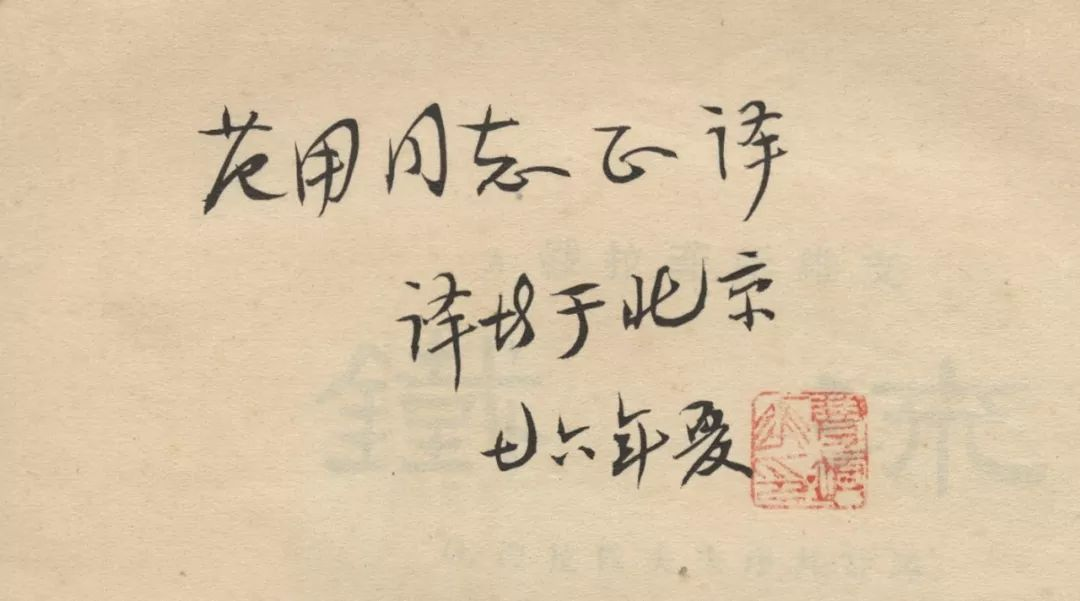 范用同志正译
译者于北京
七六年夏